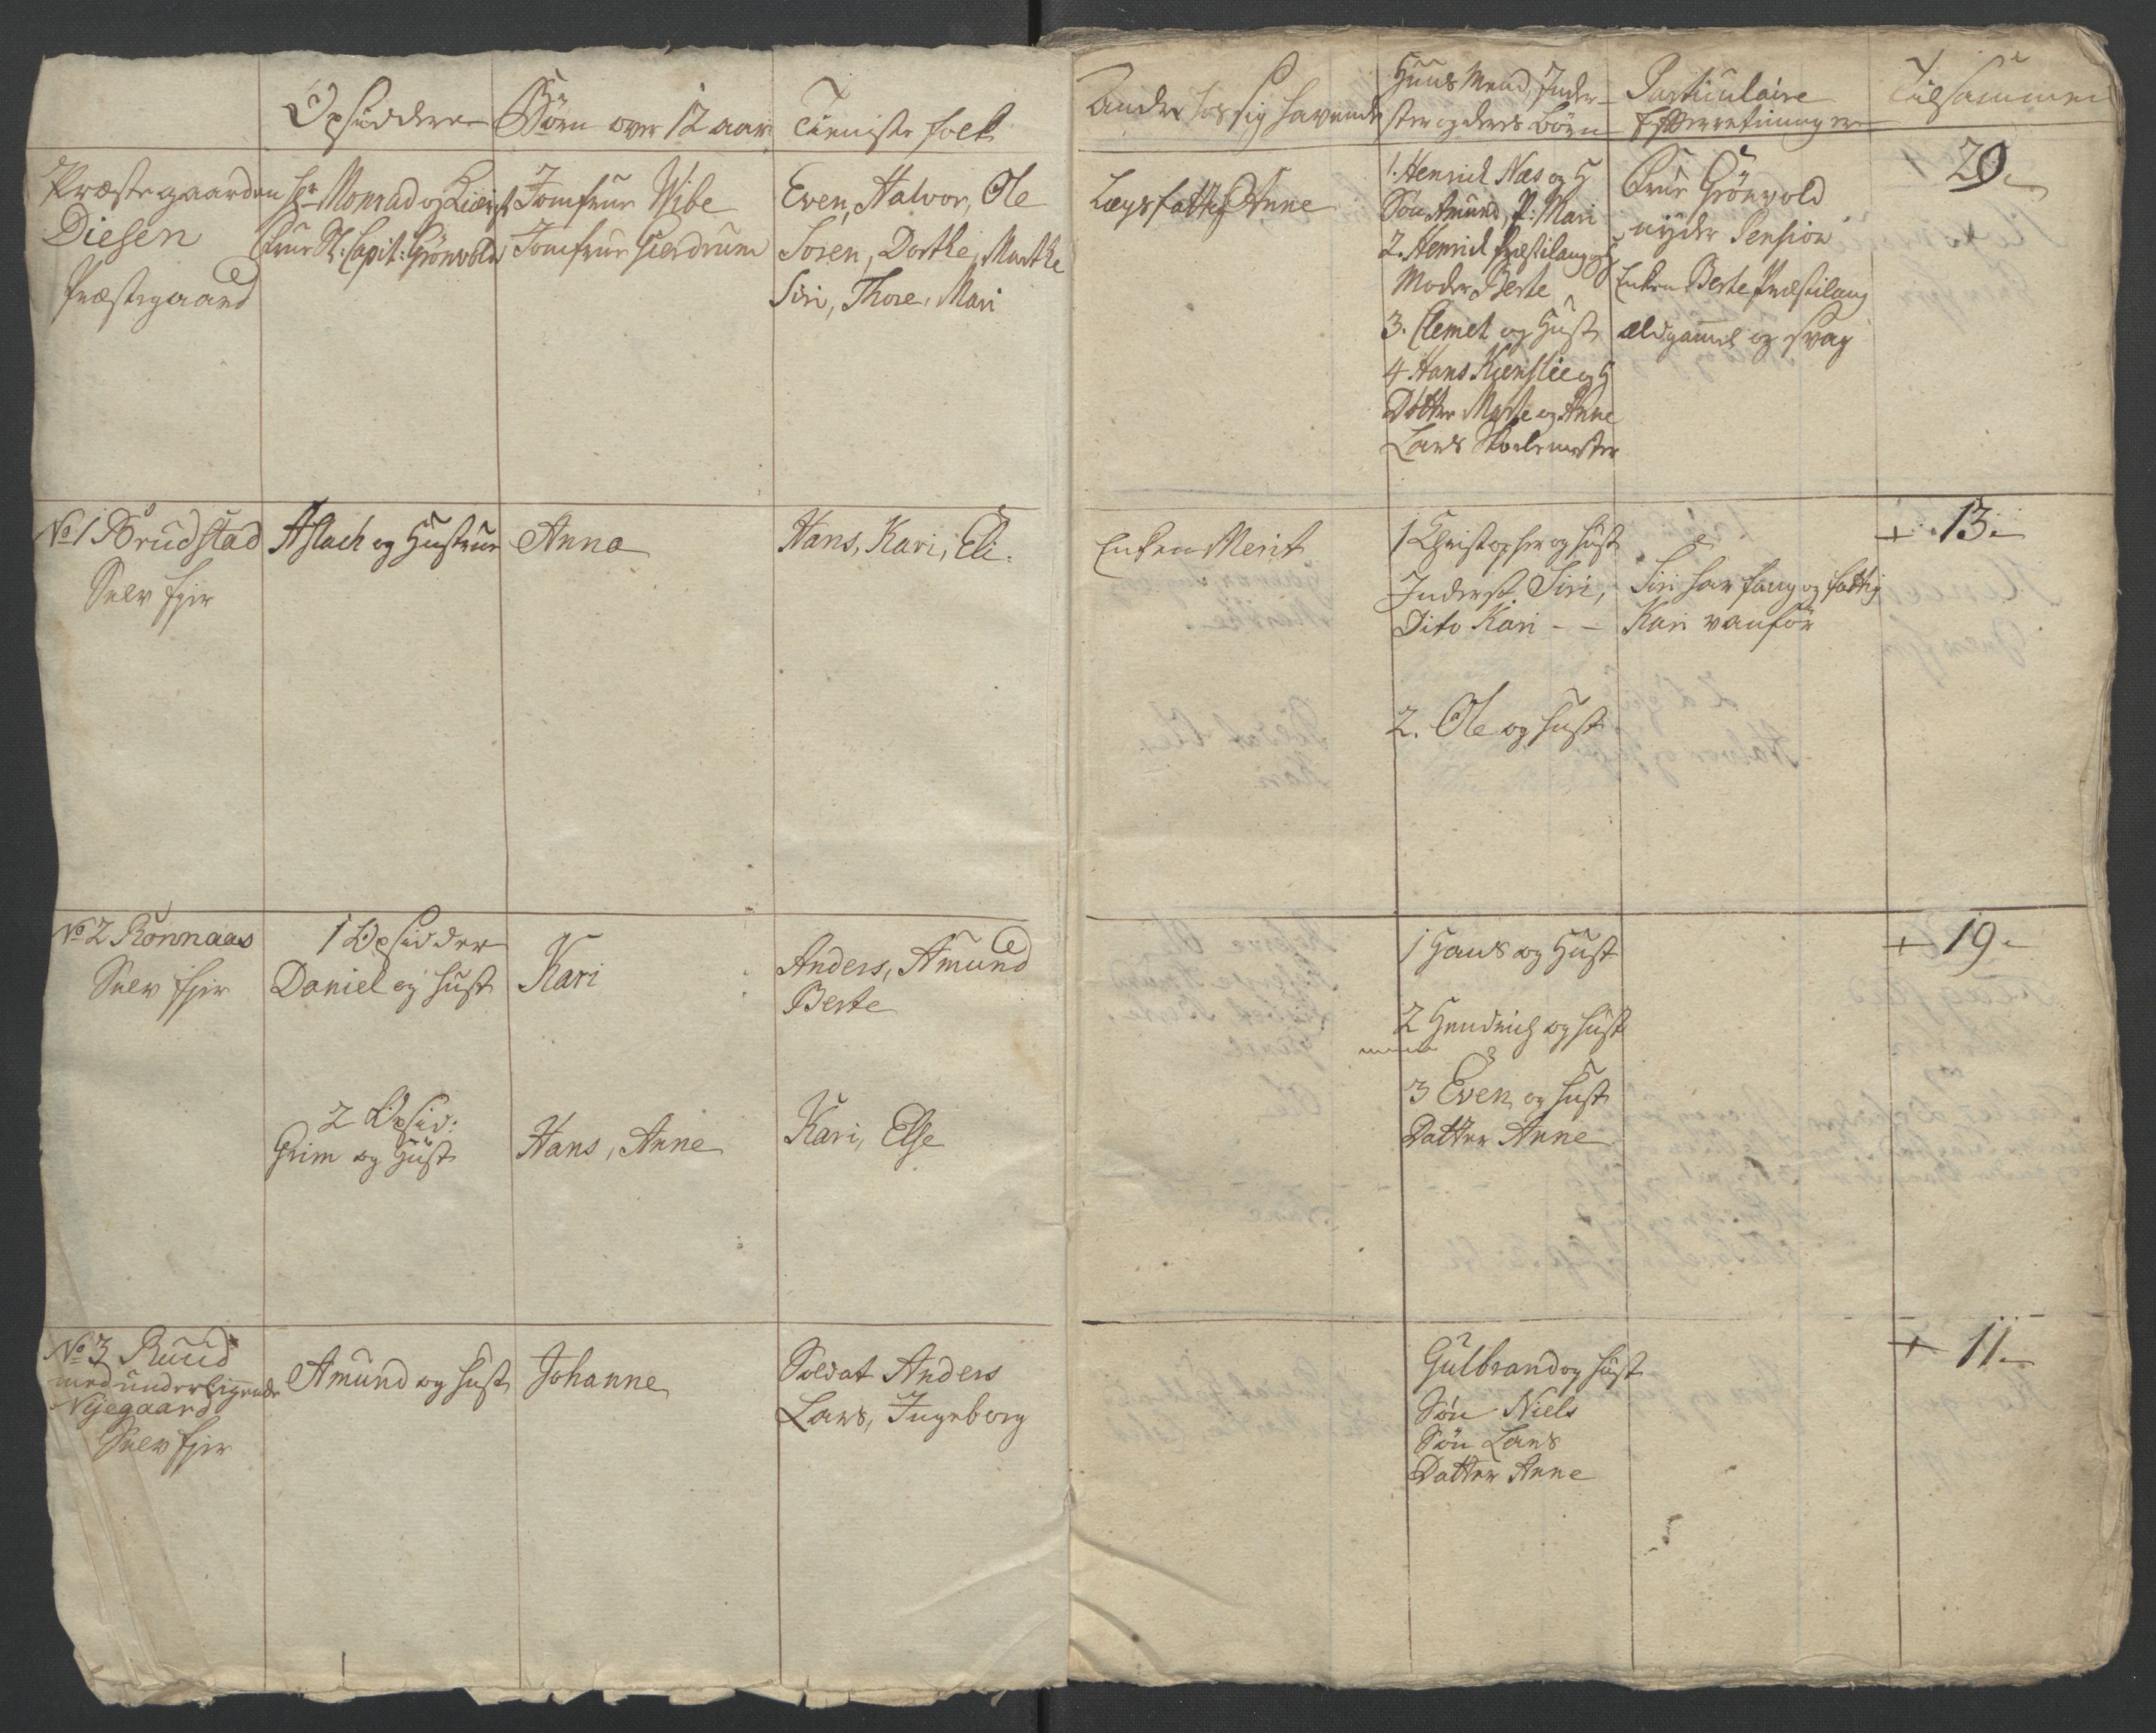 Opsiddere
Börn over 12 aar
Tieniste folk
Andre hos sig havende
Huus Mend, Inder-
ster og deres Börn
Particulaire
Efterretninger
Tilsammen
Præstegaarden
Diesen
Præstegaard
Hr Monrad og Kiærist
Frue Sl: Capit: Grönvold
Jomfrue Wibe
Jomfrue Gierdrum
Even, Halvor, Ole
Sören, Dorthe, Marthe
Siri, Thore, Mari
Lægsfattig Anne
1. Henrich Næs og H
Sön Amund, P: Mari
2. Henrich Præstilang og H
Moder Berte
3. Clemet og Hust
4 Hans Kienslie og H
Dötter Marte og Anne
Lars Skolemester
Frue Grönvold
nyder Pension
Enken Berte Præstilang
ældgamel og svag
29.
No 1 Brudstad
Selv Ejer
Aslach og Hustrue
Anna
Hans, Kari, Eli.
Enken Merit
1 Christopher og Hust
Inderst. Siri,
Dito Kari - -
2. Ole og Hust
Siri har fang og fattig
Kari vanför
+ 13.
No 2 Ronnaas
Selv Ejer
1 Opsidder
Daniel og Hust
Kari
Anders, Amund
Berte
2 Opsid:
Grim og Hust
Hans, Anne
Kari, Else
1 Hans og Hust
2 Hendrich og Hust
3 Even og Hust
Datter Anne
+ 19.
No 3 Ruud
med underliggende
Nÿegaard
Selv Ejer
Amund og Hust
Johanne
Soldat Anders
Lars, Ingeborg
Gulbrand og Hust
Sön Niels
Sön Lars
Datter Anne
+ 11.